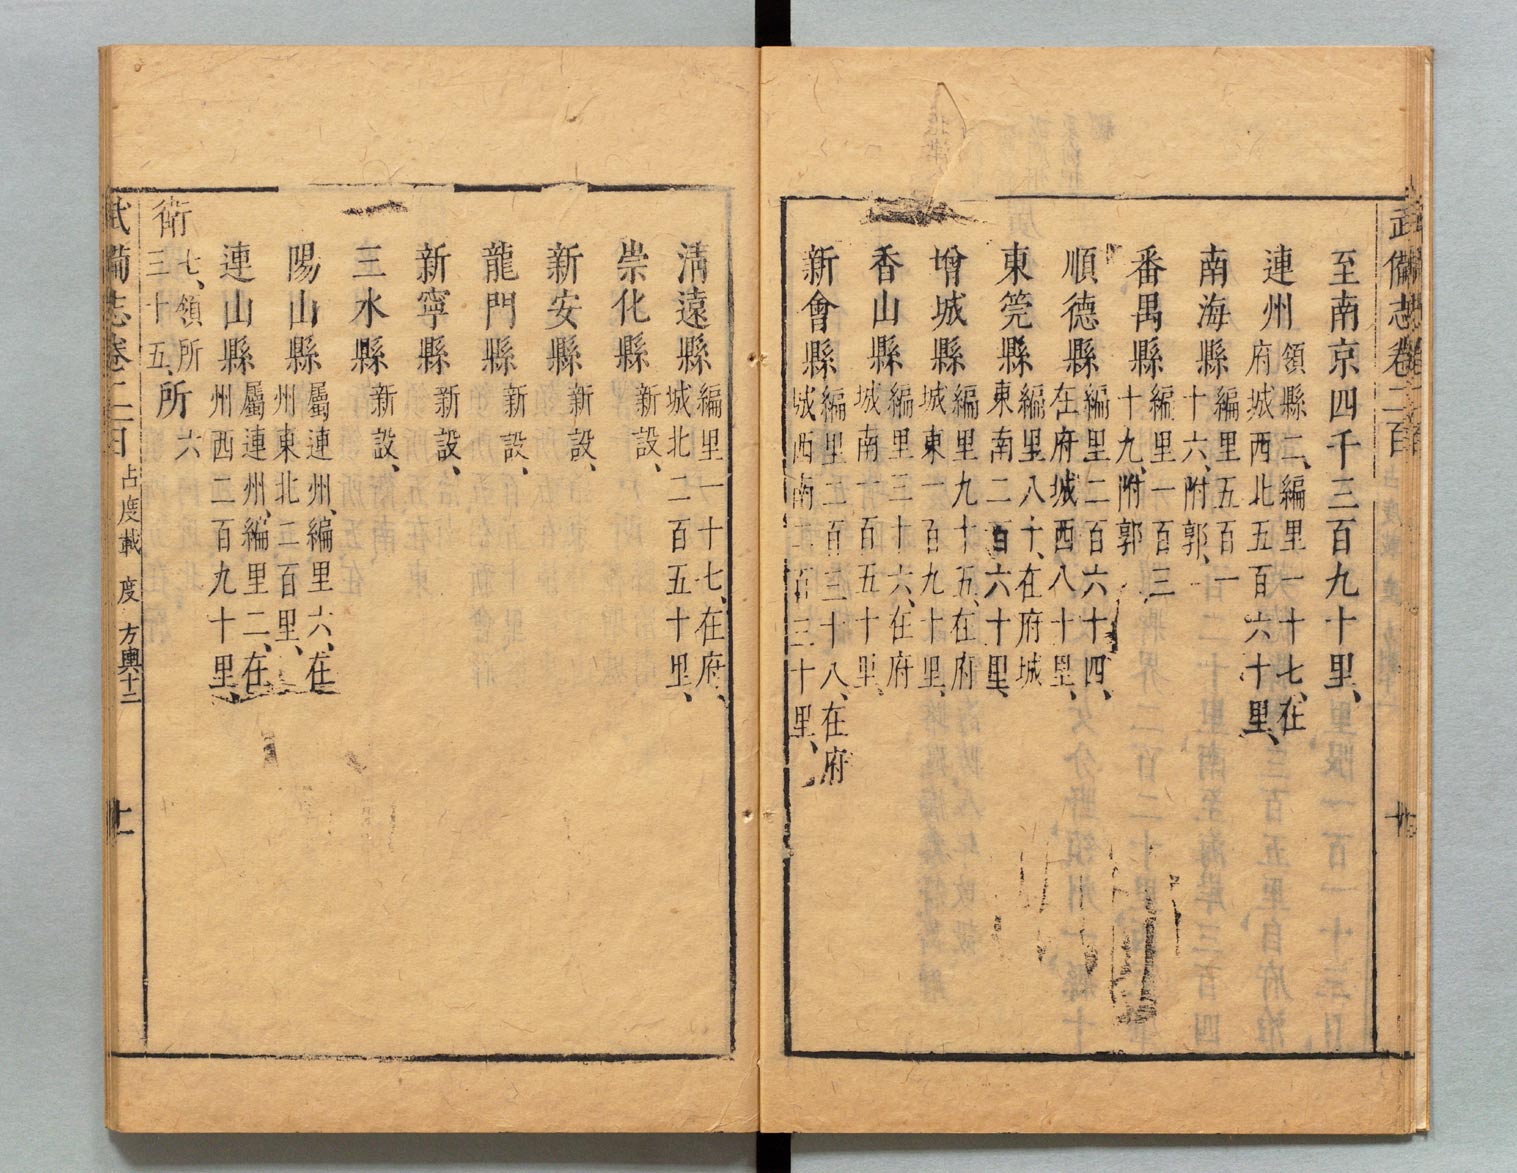 武備志卷二百
至南京四千三百九十里、
連州領縣二、編里一十七、在
府城西北五百六十里、
南海縣編里五百一
十六、附郭、
番禺縣編里一百三
十九、附郭、
順德縣編里二百六十四、
在府城西八十里、
東筦縣編里八十、在府城
東南二百六十里、
增城縣編里九十五、在府
城東一百九十里、
香山縣編里三十六、在府
城南一百五十里、
新會縣編里三百三十八、在府
城西南二百三十里、
清遠縣編里一十七、在府、
城北二百五十里、
崇化縣新設、
新安縣新設、
龍門縣新設、
新寧縣新設、
三水縣新設、
陽山縣屬連州、編里六、在
州東北二百里、
連山縣屬連州、編里二、在
州西二百九十里、
衛七、領所
三十五、所六
武備志卷二百 占度載 度 方輿十二 十一